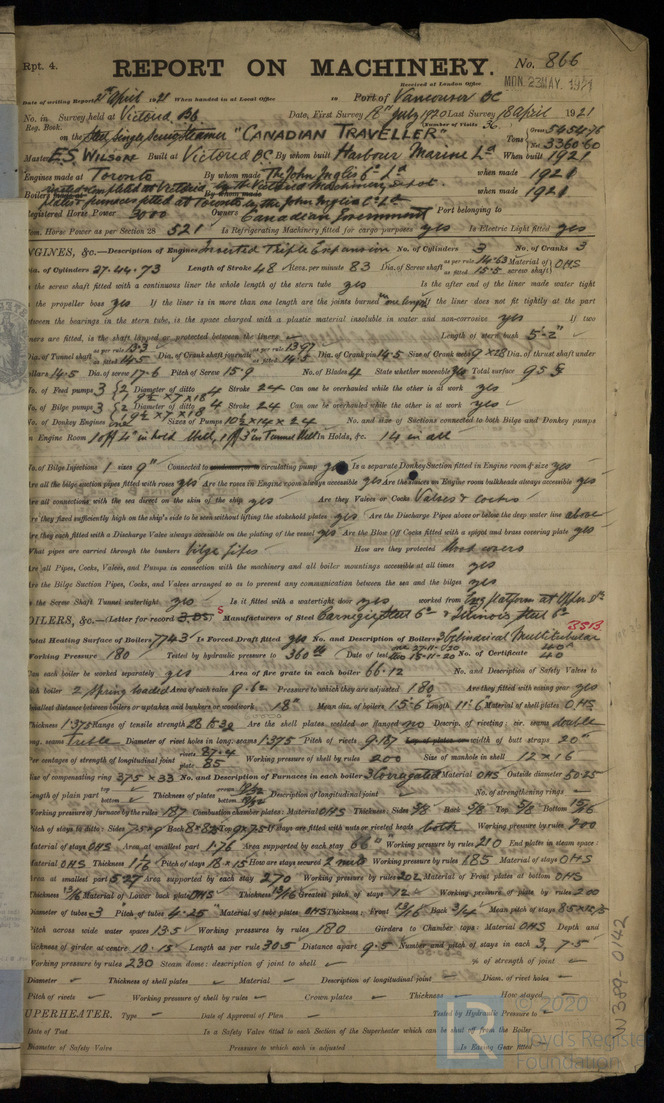 Rpt. 4.
REPORT ON MACHINERY.
No. 866
Received at London Office
MON. 23 MAY. 1921
Date of writing Report April 1921 When handed in at Local Office to Port of Vancouver BC
No. in Survey held at Victoria BC Date, First Survey July 1920 Last Survey 18 April 1921
Reg. Book. (Number of Visits
on the Steel Single Screw Steamer "CANADIAN TRAVELLER" Tons Gross 5454.76
Net 3360.60
Master E.S. Wilson Built at Victoria BC By whom built Harbour Marine Ld When built 1921
Engines made at Toronto By whom made The John Inglis Co Ld when made 1921
Boilers By whom made when made 1921
plates & furnaces fitted at Toronto by the John Inglis Co Ld
Registered Horse Power 3000 Owners Canadian Government Port belonging to
Nom. Horse Power as per Section 28 521 Is Refrigerating Machinery fitted for cargo purposes yes Is Electric Light fitted yes
ENGINES, &c.—Description of Engines Inverted Triple Expansion No. of Cylinders 3 No. of Cranks 3
Dia. of Cylinders 27.44.73 Length of Stroke 48 Revs. per minute 83 Dia. of Screw shaft as per rule 14.63 as fitted 15.5 Material of screw shaft OHS
Is the screw shaft fitted with a continuous liner the whole length of the stern tube yes Is the after end of the liner made water tight
in the propeller boss yes If the liner is in more than one length are the joints burned If the liner does not fit tightly at the part
between the bearings in the stern tube, is the space charged with a plastic material insoluble in water and non-corrosive yes If two
liners are fitted, is the shaft lapped or protected between the liners Length of stern bush 5'-2"
Dia. of Tunnel shaft as per rule 13.3 as fitted 14.5 Dia. of Crank shaft journals as per rule 13.97 as fitted 14.5 Dia. of Crank pin 14.5 Size of Crank webs 9 x 28 Dia. of thrust shaft under
collars 14.5 Dia. of screw 17-6 Pitch of Screw 15-9 No. of Blades 4 State whether moveable Total surface 95
No. of Feed pumps 3 Diameter of ditto 4 Stroke 24 Can one be overhauled while the other is at work yes
No. of Bilge pumps 3 Diameter of ditto 4 Stroke 24 Can one be overhauled while the other is at work yes
No. of Donkey Engines one Sizes of Pumps 10½ x 14 x 24 No. and size of Suctions connected to both Bilge and Donkey pumps
in Engine Room In Holds, &c. 14 in all
No. of Bilge Injections 1 sizes 9" Connected to circulating pump yes Is a separate Donkey Suction fitted in Engine room & size yes
Are all the bilge suction pipes fitted with roses yes Are the roses in Engine room always accessible yes Are the sluices on Engine room bulkheads always accessible yes
Are all connections with the sea direct on the skin of the ship yes Are they Valves or Cocks Valves & cocks
Are they fixed sufficiently high on the ship's side to be seen without lifting the stokehold plates yes Are the Discharge Pipes above or below the deep water line above
Are they each fitted with a Discharge Valve always accessible on the plating of the vessel yes Are the Blow Off Cocks fitted with a spigot and brass covering plate yes
What pipes are carried through the bunkers bilge pipes How are they protected Wood covers
Are all Pipes, Cocks, Valves, and Pumps in connection with the machinery and all boiler mountings accessible at all times yes
Are the Bilge Suction Pipes, Cocks, and Valves arranged so as to prevent any communication between the sea and the bilges yes
Is the Screw Shaft Tunnel watertight yes Is it fitted with a watertight door yes worked from Eng Platform at Upper Dk
BOILERS, &c.—(Letter for record S) Manufacturers of Steel Carnegie Steel Co & Illinois Steel Co
3SB
Total Heating Surface of Boilers 7743 Is Forced Draft fitted yes No. and Description of Boilers 3 Cylindrical Multitubular
Working Pressure 180 Tested by hydraulic pressure to 360 Date of test No. of Certificate
Can each boiler be worked separately yes Area of fire grate in each boiler 66.12 No. and Description of Safety Valves to
each boiler 2 Spring loaded Area of each valve 9.62 Pressure to which they are adjusted 180 Are they fitted with easing gear yes
Smallest distance between boilers or uptakes and bunkers or woodwork 18" Mean dia. of boilers 15-6 Length 11-6 Material of shell plates OHS
Thickness 1.375 Range of tensile strength 28 to 32 Are the shell plates welded or flanged no Descrip. of riveting: cir. seams double
long. seams Treble Diameter of rivet holes in long. seams 1.375 Pitch of rivets 9.187 width of butt straps 20"
Per centages of strength of longitudinal joint rivets 87.4 plate 85 Working pressure of shell by rules 200 Size of manhole in shell 12 x 16
Size of compensating ring 37.5 x 33 No. and Description of Furnaces in each boiler 3 Corrugated Material OHS Outside diameter 50.25
Length of plain part top bottom Thickness of plates crown bottom Description of longitudinal joint No. of strengthening rings
Working pressure of furnace by the rules 187 Combustion chamber plates: Material OHS Thickness: Sides 5/8 Back 5/8 Top 5/8 Bottom
Pitch of stays to ditto: Sides Back Top If stays are fitted with nuts or riveted heads both Working pressure by rules 200
Material of stays OHS Area at smallest part 1.76 Area supported by each stay 66" Working pressure by rules 210 End plates in steam space:
Material OHS Thickness Pitch of stays 18 x 15 How are stays secured 2 nuts Working pressure by rules 185 Material of stays OHS
Area at smallest part 5.27 Area supported by each stay 270 Working pressure by rules 202 Material of Front plates at bottom OHS
Thickness 13/16 Material of Lower back plate OHS Thickness 13/16 Greatest pitch of stays Working pressure of plate by rules 200
Diameter of tubes 3 Pitch of tubes 4.25" Material of tube plates OHS Thickness: Front 13/16 Back 3/4 Mean pitch of stays
Pitch across wide water spaces 13.5 Working pressures by rules 180 Girders to Chamber tops: Material OHS Depth and
thickness of girder at centre Length as per rule 30.5 Distance apart 9.5 Number and pitch of stays in each 3, 7.5
Working pressure by rules 230 Steam dome: description of joint to shell % of strength of joint
Diameter Thickness of shell plates Material Description of longitudinal joint Diam. of rivet holes
Pitch of rivets Working pressure of shell by rules Crown plates Thickness How stayed
SUPERHEATER. Type Date of Approval of Plan Tested by Hydraulic Pressure to
Date of Test Is a Safety Valve fitted to each Section of the Superheater which can be shut off from the Boiler
Diameter of Safety Valve Pressure to which each is adjusted Is Easing Gear fitted
W389-0142
© 2020
Lloyd's Register
Foundation